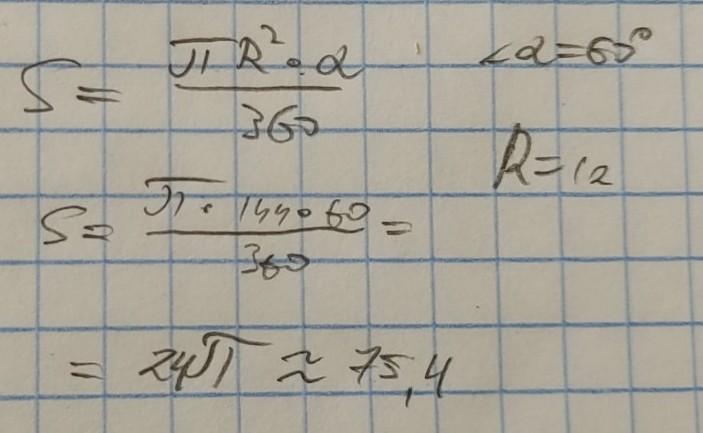 S = πR² · α / 360
∠α = 60°
R = 12
S = π · 144 · 60 / 360 =
= 24π ≈ 75,4